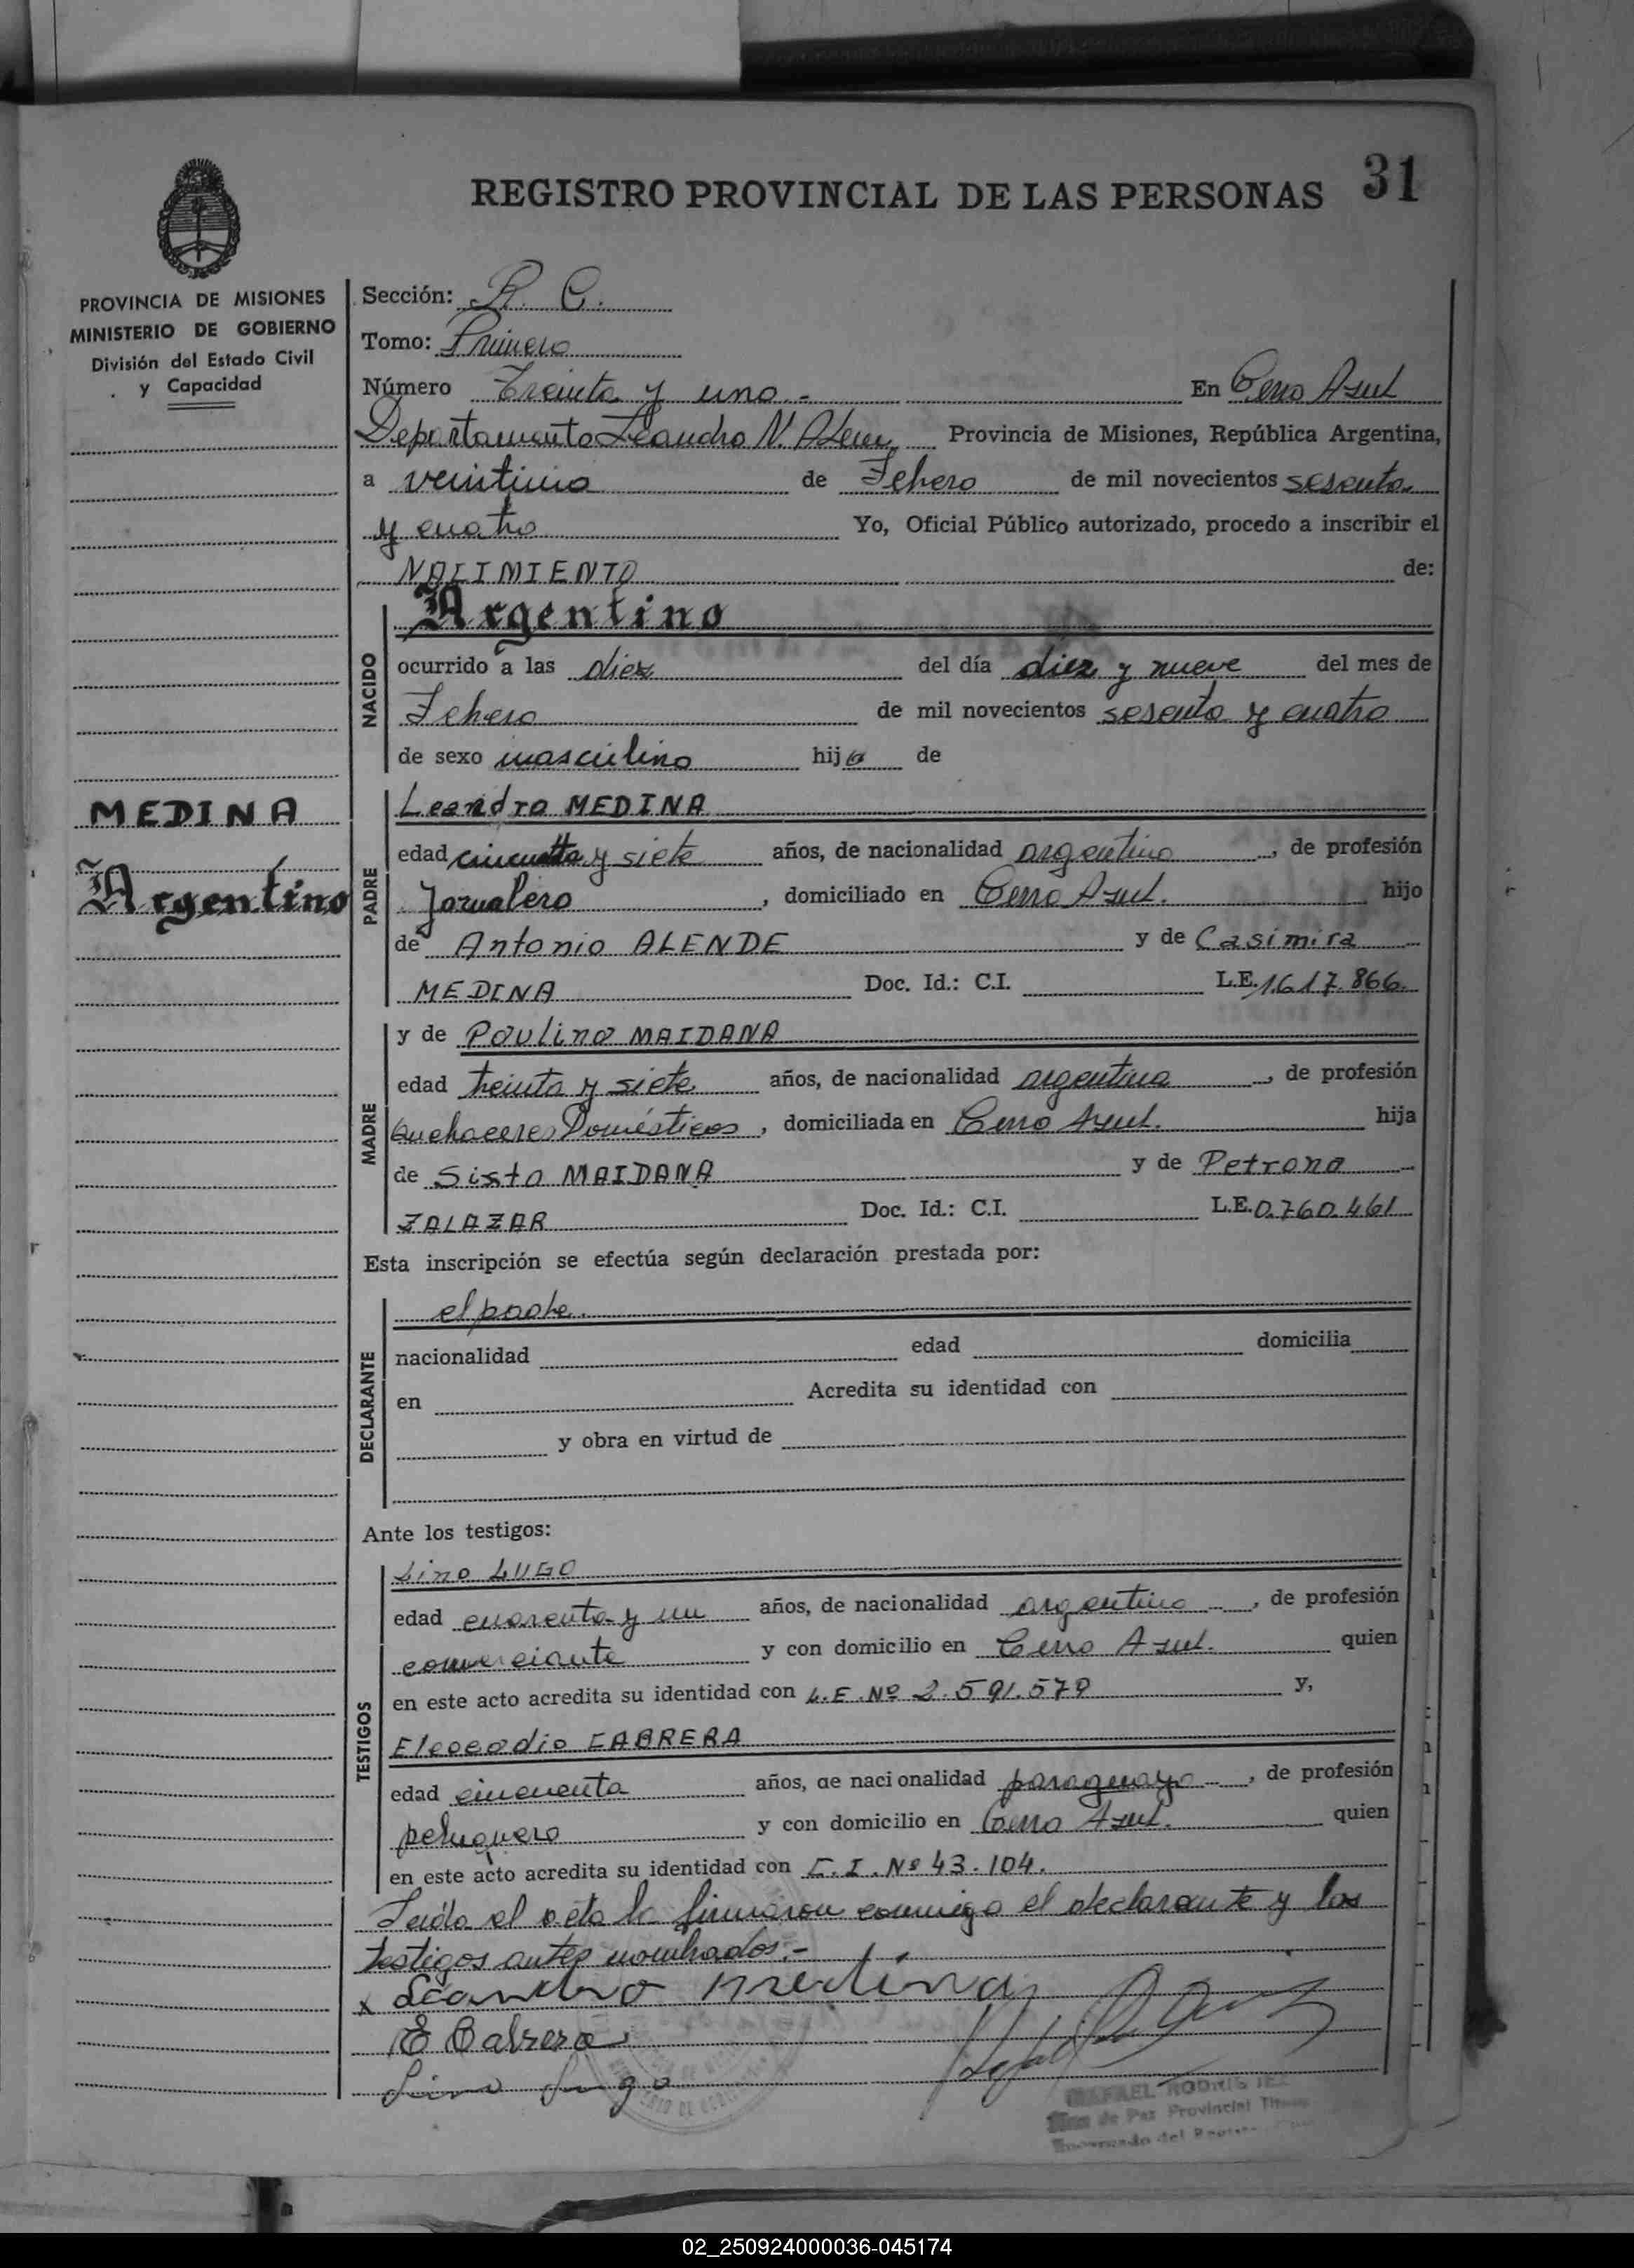 REGISTRO PROVINCIAL DE LAS PERSONAS 31
PROVINCIA DE MISIONES
MINISTERIO DE GOBIERNO
División del Estado Civil
y Capacidad
MEDINA
Argentino
Sección: R. C.
Tomo: Primero
Número Treinta y uno.- En Cerro Azul
Departamento Leandro N. Alem, Provincia de Misiones, República Argentina,
a veintiuno de Febrero de mil novecientos sesenta
y cuatro Yo, Oficial Público autorizado, procedo a inscribir el
NACIMIENTO de:
NACIDO
Argentino
ocurrido a las diez del día diez y nueve del mes de
Febrero de mil novecientos sesenta y cuatro
de sexo masculino hijo de
PADRE
Leandro MEDINA
edad cincuenta y siete años, de nacionalidad argentino, de profesión
Jornalero, domiciliado en Cerro Azul. hijo
de Antonio ALENDE y de Casimira
MEDINA Doc. Id.: C.I. L.E. 1.617.866.
MADRE
y de Paulina MAIDANA
edad treinta y siete años, de nacionalidad argentina, de profesión
Quehaceres Domésticos, domiciliada en Cerro Azul. hija
de Sixto MAIDANA y de Petrona
ZALAZAR Doc. Id.: C.I. L.E. 0.760.461
Esta inscripción se efectúa según declaración prestada por:
DECLARANTE
el padre.
nacionalidad edad domicilia
en Acredita su identidad con
y obra en virtud de
Ante los testigos:
TESTIGOS
Lino LUGO
edad cuarenta y un años, de nacionalidad argentino, de profesión
comerciante y con domicilio en Cerro Azul. quien
en este acto acredita su identidad con L.E. Nº 2.591.579 y,
Eleocadio CABRERA
edad cincuenta años, de nacionalidad paraguayo, de profesión
peluquero y con domicilio en Cerro Azul. quien
en este acto acredita su identidad con C.I. Nº 43.104.
Leída el acta la firmaron conmigo el declarante y los
testigos antes nombrados.-
x Leandro Medina
E Cabrera
Lino Lugo
RAFAEL RODRIG
de Paz Provincial
Encargado del
02_250924000036-045174